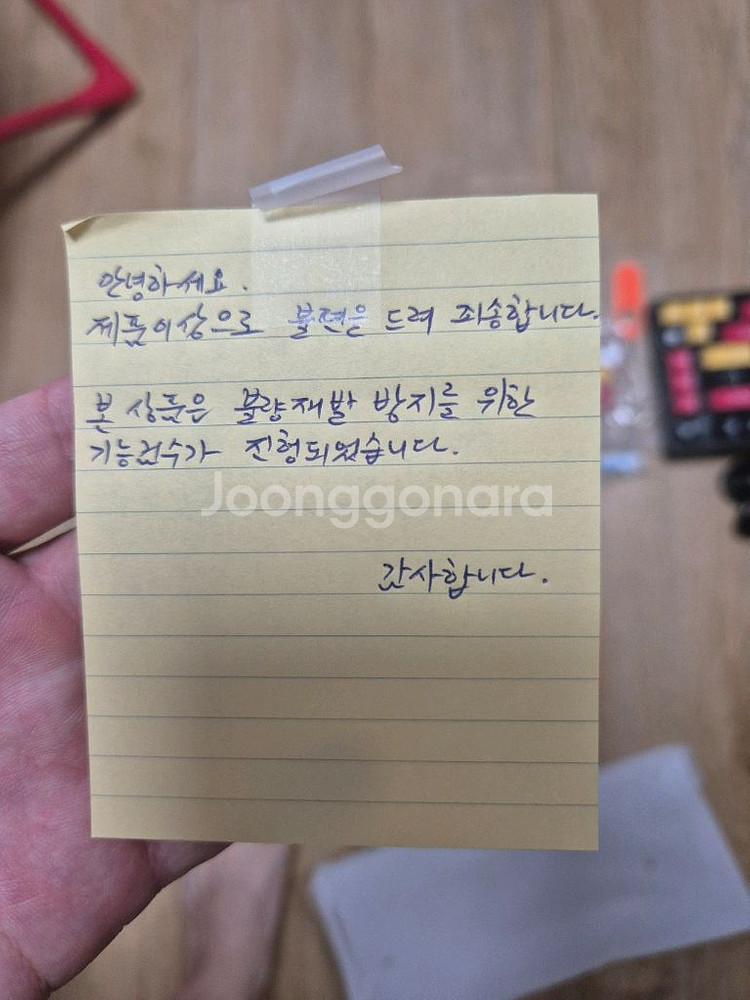 안녕하세요.
제품이상으로 불편은 드려 죄송합니다.
본 상품은 불량재발 방지를 위한
기능검수가 진행되었습니다.
Joonggonara
감사합니다.